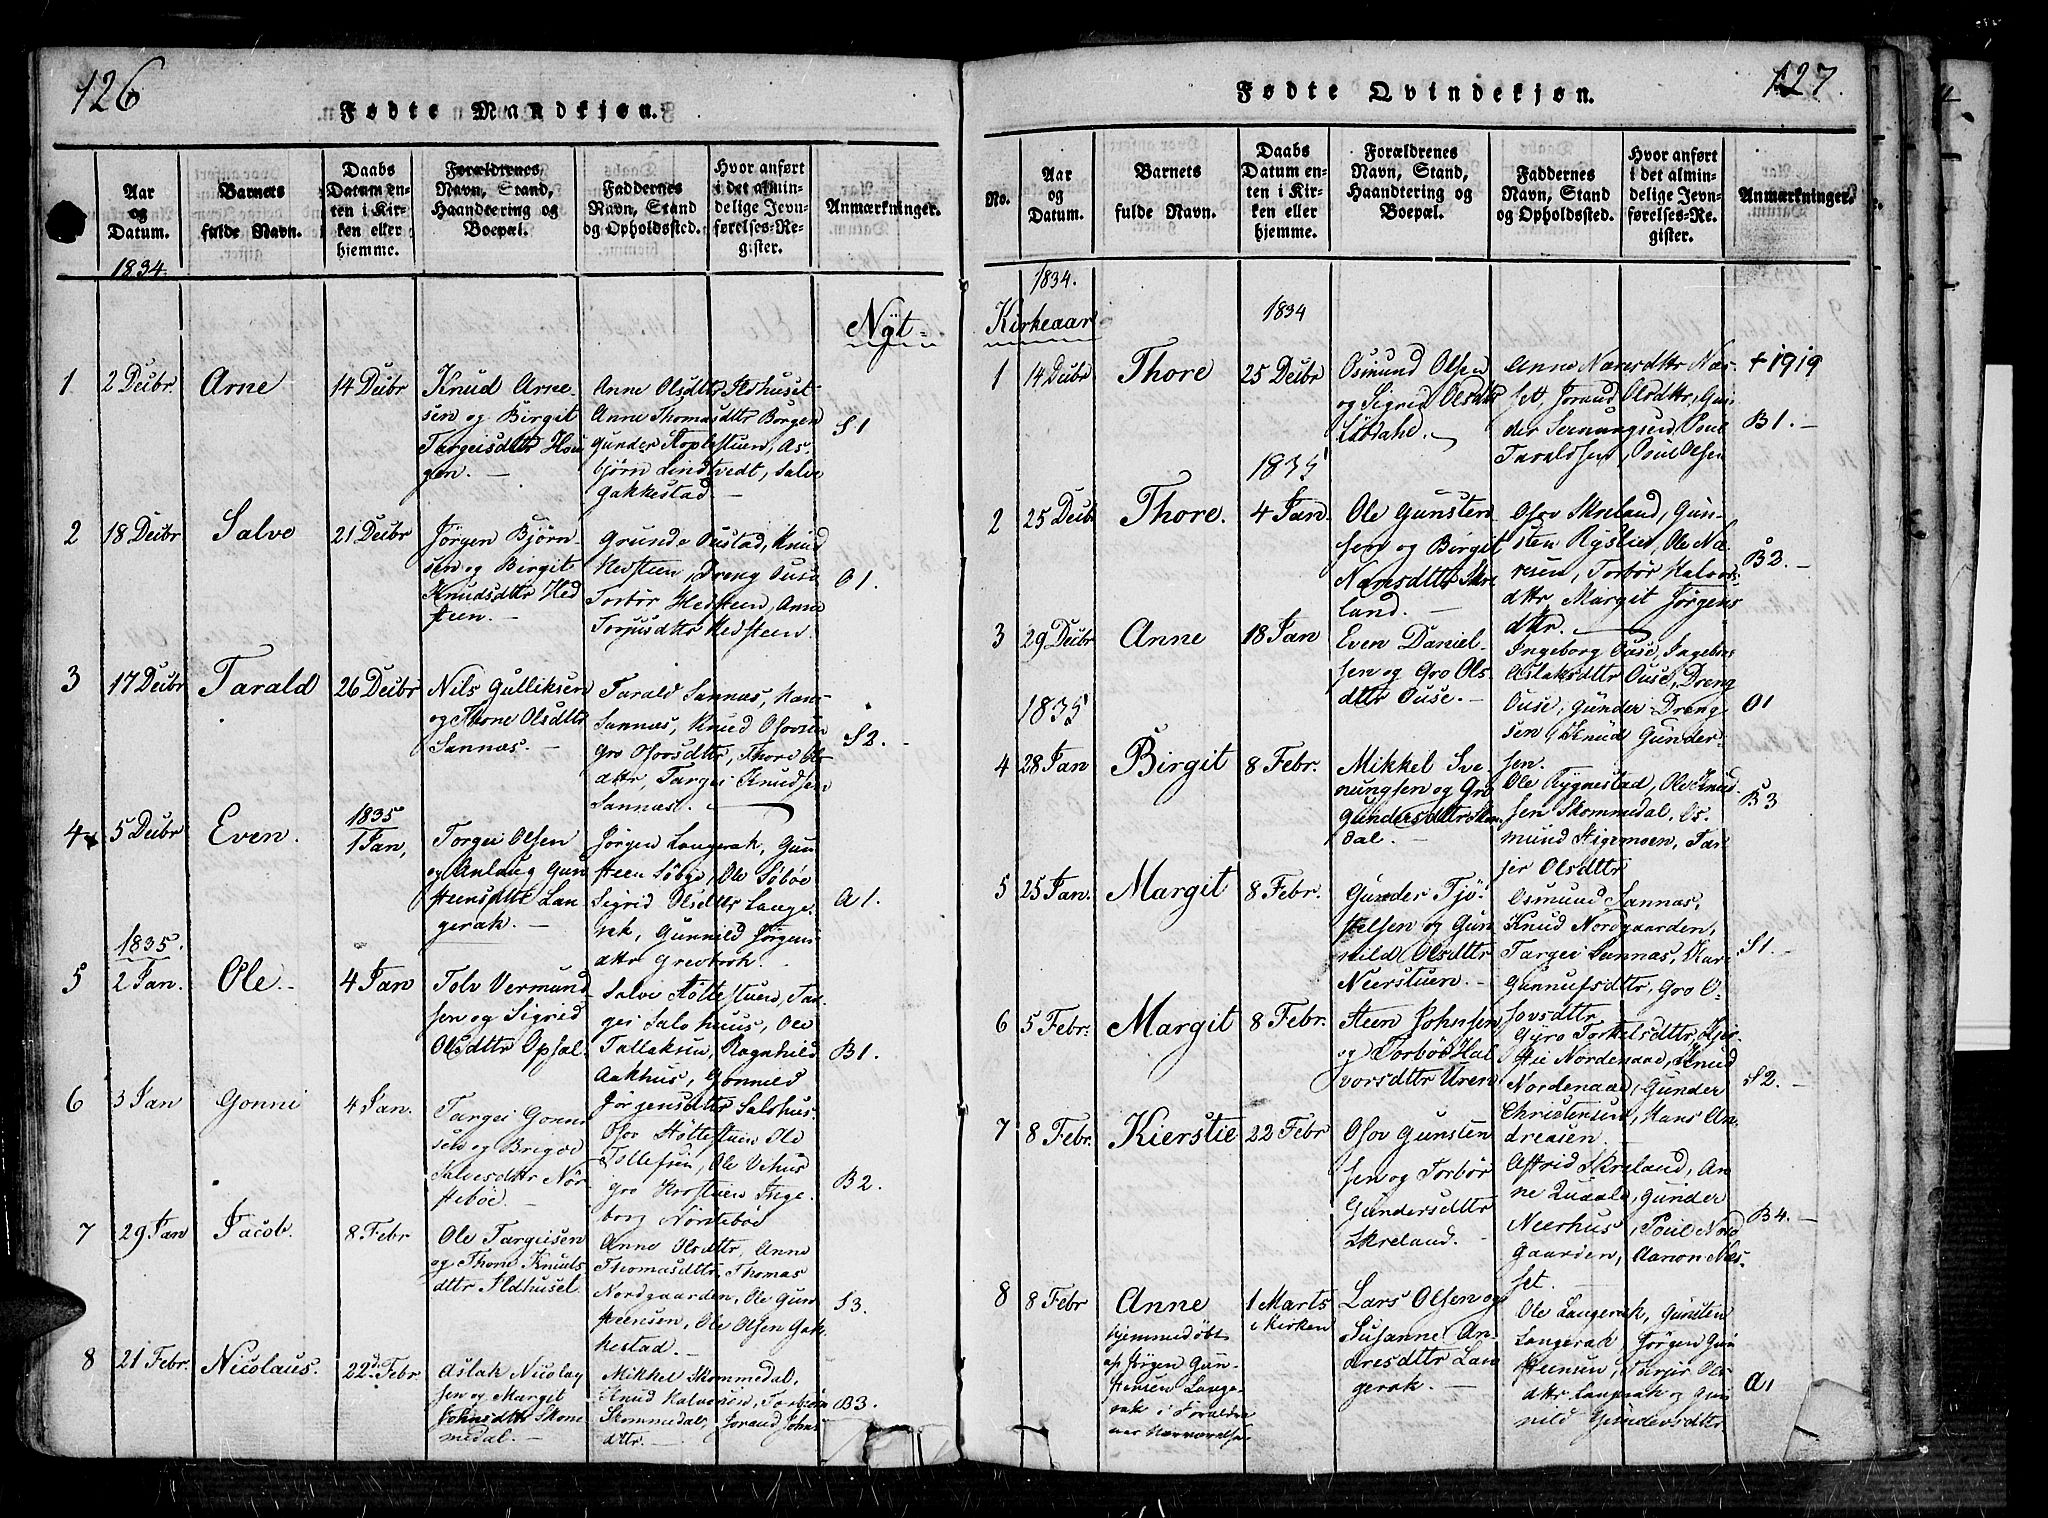 126
Fødte Mandkjøn.
Aar og Datum.
Barnets fulde Navn.
Daabs Datum enten i Kirken eller hjemme.
Forældrenes Navn, Stand, Haandtering og Boepæl.
Faddernes Navn, Stand og Opholdssted.
Hvor anført i det almindelige Jevnførelses-Register.
Anmærkninger.
1834.
Nyt-
1
2 Decbr.
Arne
14 Decbr
Knud Arne-
sen og Birgit
Targeisdttr Hou
gen.
Anne Olsdttr Ildhuset
Anne Thomasdttr Borgen
Gunder Topleştuen, As-
bjørn Lindtvedt, Salve
Gakkestad.
S1
2
18 Decbr
Salve
21 Decbr
Jørgen Bjørn-
sen og Birgit
Knudsdttr Hed
steen.
Grunde Oustad, Knud
Hedsteen, Dreng Ouse
Torbor Hedsteen, Anne
Torjusdttr Hedsteen.
O1.
3
17 Decbr
Tarald
26 Decbr
Nils Gulliksen
og Thone Olsdttr
Sannæs.
Tarald Sannæs, Hans
Sannæs, Knud Osovsen
Gro Osovsdttr, Thore Ols
dttr, Targei Knudsen
Sannæs.
S2.
4
5 Decbr
Even.
1835
1 Jan,
Torgei Olsen
og Anlaug Gun
steensdttr Lan
gerak.
Jørgen Langerak, Gun
steen Søbye, Ole Søbøe
Sigrid Olsdttr Lange-
rak, Gunnild Jørgens
dttr Grevbrok.
A1.
1835.
5
2 Jan.
Ole
4 Jan
Tolv Vermund
sen og Sigrid
Olsdttr Opsal
Salve Høltestuen, Tar
gei Salshuus, Ole
Tallaksen, Ragnhild
Aakhus, Gonnild
Jørgensdttr Salshus.
B1.
6
3 Jan
Gonni
4 Jan.
Targei Gonni
sen og Brigde
Salvesdttr Nør
stebøe.
Osov Høltestuen Ole
Tollefsen, Ole Uhus
Gro Horstuen Inge
borg Nørstebøe
B2.
7
29 Jan
Jacob.
8 Febr
Ole Targeisen
og Thone Knuts
dttr Ildhuset
Anne Olsdttr, Anne
Thomasdttr, Thomas
Nordgaarden, Ole Gun
steensen, Ole Olsen Gak
kestad.
S3.
8
21 Febr.
Nicolaus.
22d Febr
Aslak Nicolay
sen og Margit
Johnsdttr Skom
medal.
Mikkel Skommedal,
Knud Halvorsen, Torbjørn
Skommedal, Joraud Johns
dttr.
B3.
127.
Fødte Qvindekjøn.
No.
Aar og Datum.
Barnets fulde Navn.
Daabs Datum enten i Kirken eller hjemme.
Forældrenes Navn, Stand, Haandtering og Boepæl.
Faddernes Navn, Stand og Opholdssted.
Hvor anført i det almindelige Jevnførelses-Register.
Anmærkninger.
1834.
Kirkeaar
1834
1
14 Decbr
Thore
25 Decbr
Osmund Olsen
og Sigrid Olsdttr
Anne Narvesdttr Næs-
set, Joraud Olsdttr, Gun
der Sernungsen, Poul
Taraldsen, Poul Olsen
+1919
B1.
1835
2
25 Decbr
Thore.
4 Jan
Ole Gunsten
sen og Birgit
Narvesdttr Skre
land.
Osov Skreland, Gun-
sten Rysliev, Ole Næ-
resen, Torbor Halvors
dttr Margit Jørgens
dttr.
B2.
3
29 Decbr
Anne
18 Jan
Even Daniel-
sen og Gro Ols
dttr Ouse.
Ingeborg Ouse, Ingeborg
Aslaksdttr Ouse, Dreng
Ouse, Gunder Dreng
sen, Knud Gunder-
sen.
O1
1835
4
28 Jan
Birgit
8 Febr.
Mikkel Sve
nungsen og Gro
Gundersdttr Skom
dal.
Ole Rygnestad, Ole Knud
sen Skommedal, Os-
mund Stigemoen, Tar
jer Olsdttr
B3
5
25 Jan.
Margit
8 Febr.
Gunder Tjø-
stelsen og Gun
nild Olsdttr
Neerstuen.
Osmund Sannæs,
Knud Nordgaarden,
Targei Sannæs, Kar-
Gunnufsdttr, Gro O-
sovsdttr
S1.
6
5 Febr.
Margit
8 Febr.
Steen Johnsen
og Torbor Hal
vorsdttr Uren
Gyro Torkelsdttr, Kjer-
stie Nordenaae, Knud
Nordenaae, Gunder
Christensen, Hans An
dreasen.
S2.
7
8 Febr.
Kierstie
22 Febr
Osov Gunsten
sen og Torbor
Gundersdttr
Skreland.
Astrid Skreland, An
ne Kudale, Gunder
Neerhus, Poul Nord
gaarden, Aanon Næs-
set.
B4.
8
8 Febr
Anne
hjemmedøbt
af Jørgen Gun-
stensen Lange-
rak i Forældre
nes Nærværelse
1 Marts
i Kirken
Lars Olsen og
Susanne An-
dresdttr Lan
gerak.
Ole Langerak, Gunsten
Langerak, Jørgen Gun
steensen, Tarjer Ols
dttr Langerak og Gun
nild Gundersdttr
A1